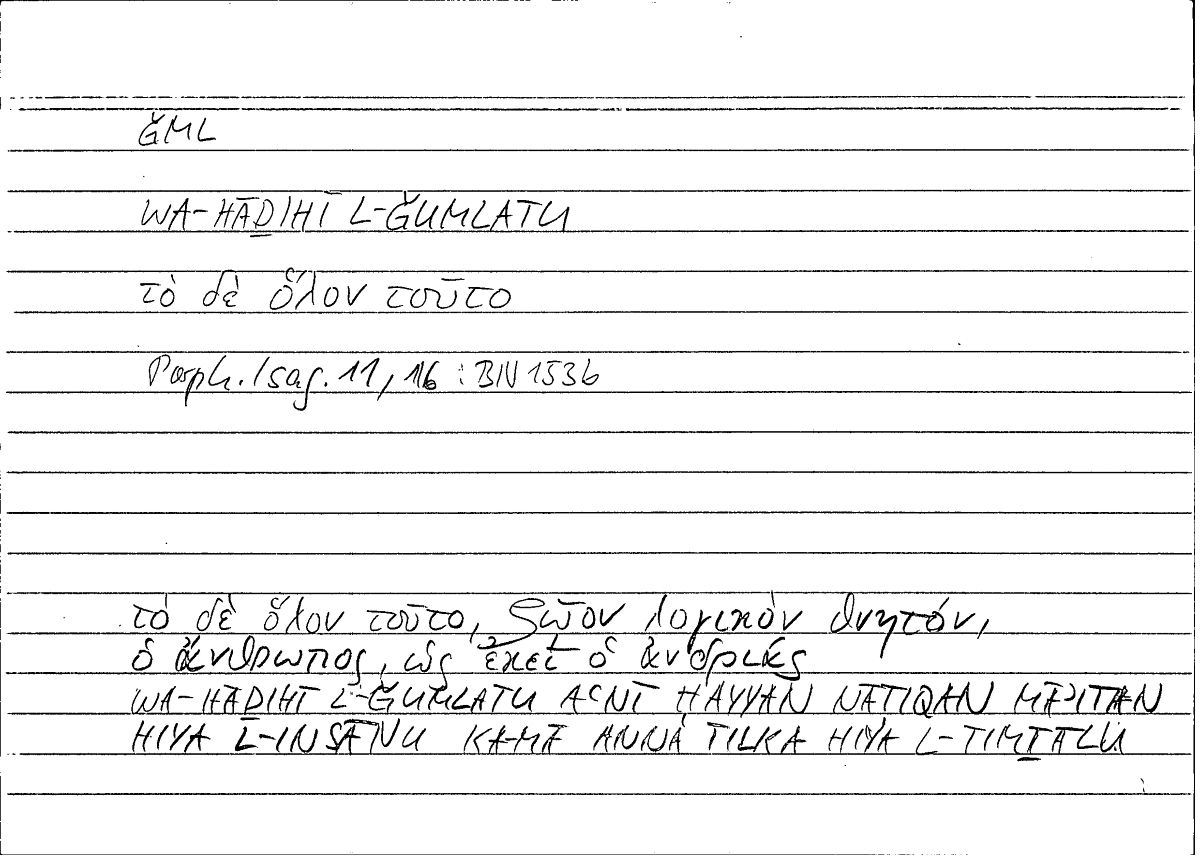 ǦML
WA-HĀḎIHĪ L-ǦUMLATU
τὸ δὲ ὅλον τοῦτο
Porph. Isag. 11, 16 : BIV 153b
τὸ δὲ ὅλον τοῦτο, ζῷον λογικὸν θνητόν,
ὁ ἄνθρωπος, ὡς ἐκεῖ ὁ ἀνδριάς
WA-HĀḎIHĪ L-ǦUMLATU AʿNĪ ḤAYYAN NĀṬIQAN MĀʾITAN
HIYA L-INSĀNU KAMĀ ANNA TILKA HIYA L-TIMṮĀLU